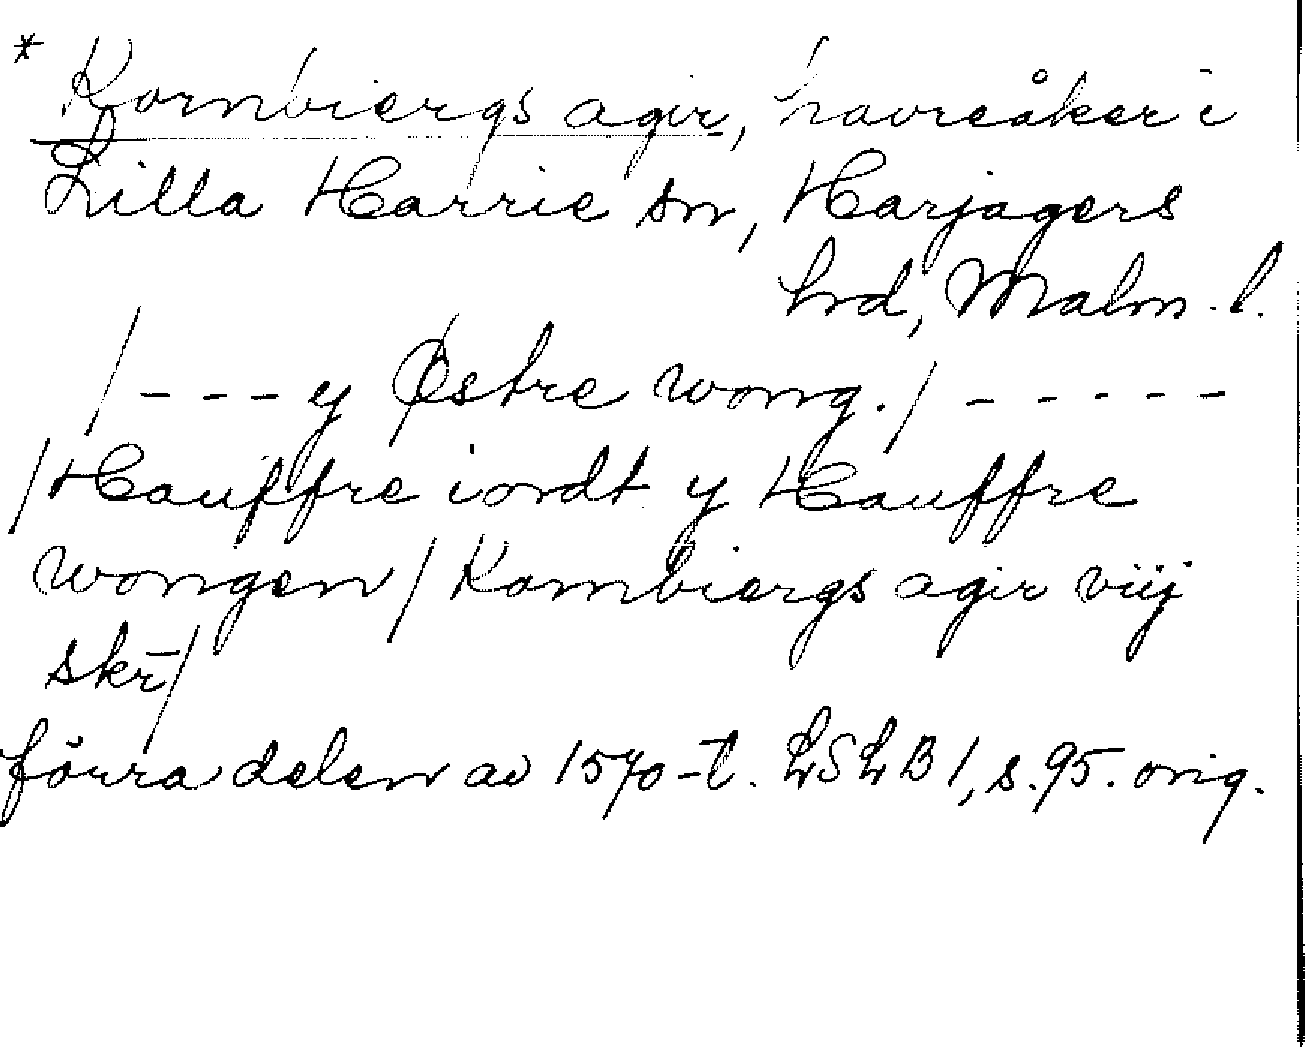 * Kornbiergs agir, havreåker i
Lilla Harrie sn, Harjagers
hrd, Malm. l.
/ - - - y Østre wong. / - - - - -
/ Hauffre iordt y Hauffre
wongen / Kornbiergs agir viij
skr̄ /
förra delen av 1570-t. LSLB 1, s. 95. orig.